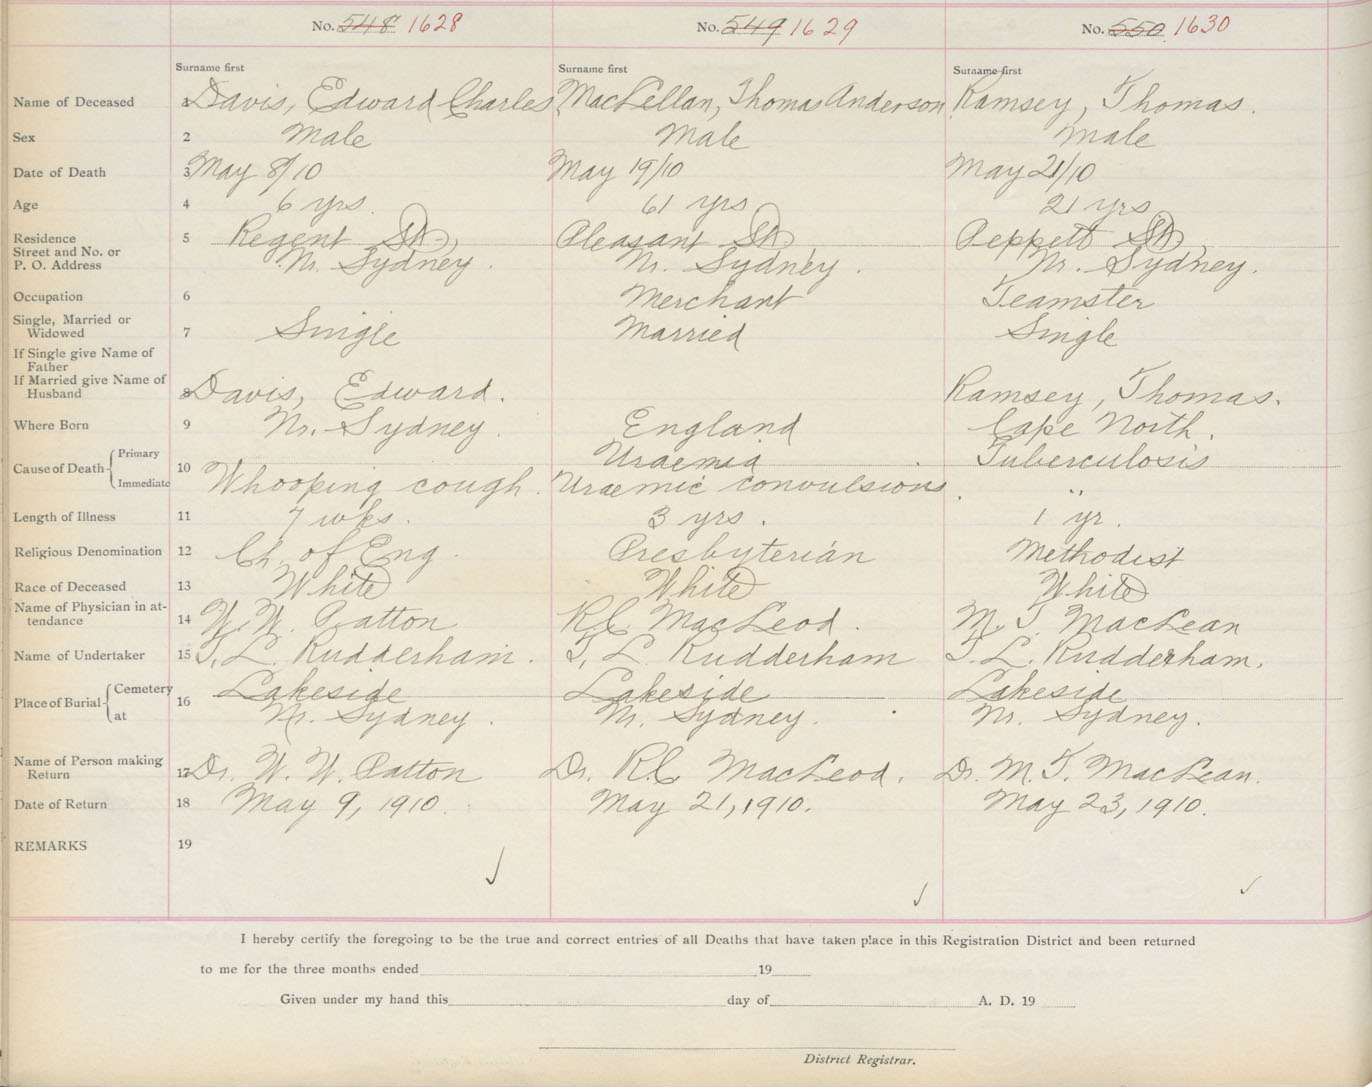 No. 548 1628 No. 549 1629 No. 550 1630
Surname first Surname first Surname first
Name of Deceased 1 Davis, Edward Charles MacLellan, Thomas Anderson Ramsey, Thomas.
Sex 2 Male Male Male
Date of Death 3 May 8/10 May 19/10 May 21/10
Age 4 6 yrs. 61 yrs 21 yrs
Residence 5 Regent St., Pleasant St, Peppett St,
Street and No. or
P. O. Address Nr. Sydney. Nr. Sydney. Nr. Sydney.
Occupation 6 Merchant Teamster
Single, Married or
Widowed 7 Single Married Single
If Single give Name of
Father
If Married give Name of
Husband 8 Davis, Edward. Ramsey, Thomas.
Where Born 9 Nr. Sydney. England Cape North.
Cause of Death 10 Primary Uraemia Tuberculosis
Immediate Whooping cough. Uraemic convulsions. "
Length of Illness 11 7 wks. 3 yrs. 1 yr.
Religious Denomination 12 Ch. of Eng. Presbyterian Methodist
Race of Deceased 13 White White White
Name of Physician in at-
tendance 14 W. W. Patton R.C. MacLeod. M. T. MacLean
Name of Undertaker 15 T. L. Rudderham. T. L. Rudderham T. L. Rudderham.
Place of Burial 16 Cemetery Lakeside Lakeside Lakeside
at Nr. Sydney. Nr. Sydney. Nr. Sydney.
Name of Person making
Return 17 Dr. W. W. Patton Dr. R.C. MacLeod. Dr. M. T. MacLean.
Date of Return 18 May 9, 1910. May 21, 1910. May 23, 1910.
REMARKS 19
I hereby certify the foregoing to be the true and correct entries of all Deaths that have taken place in this Registration District and been returned
to me for the three months ended 19
Given under my hand this day of A. D. 19
District Registrar.